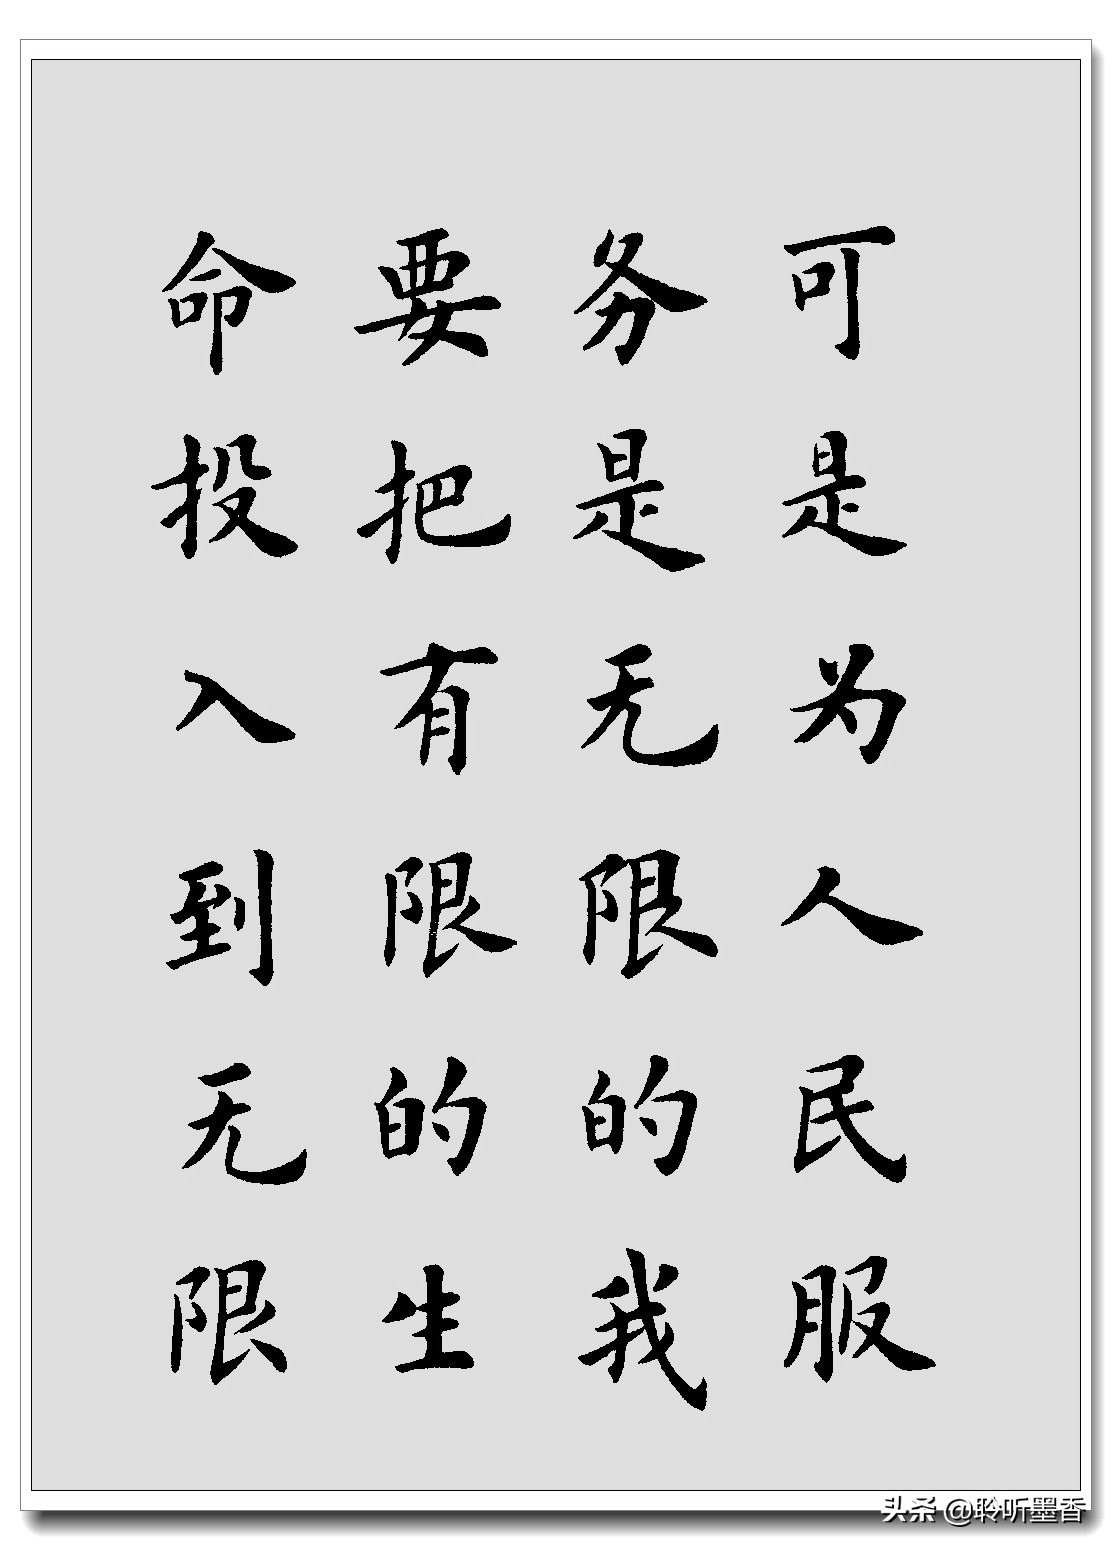 可是为人民服
务是无限的我
要把有限的生
命投入到无限
头条 @聆听墨香